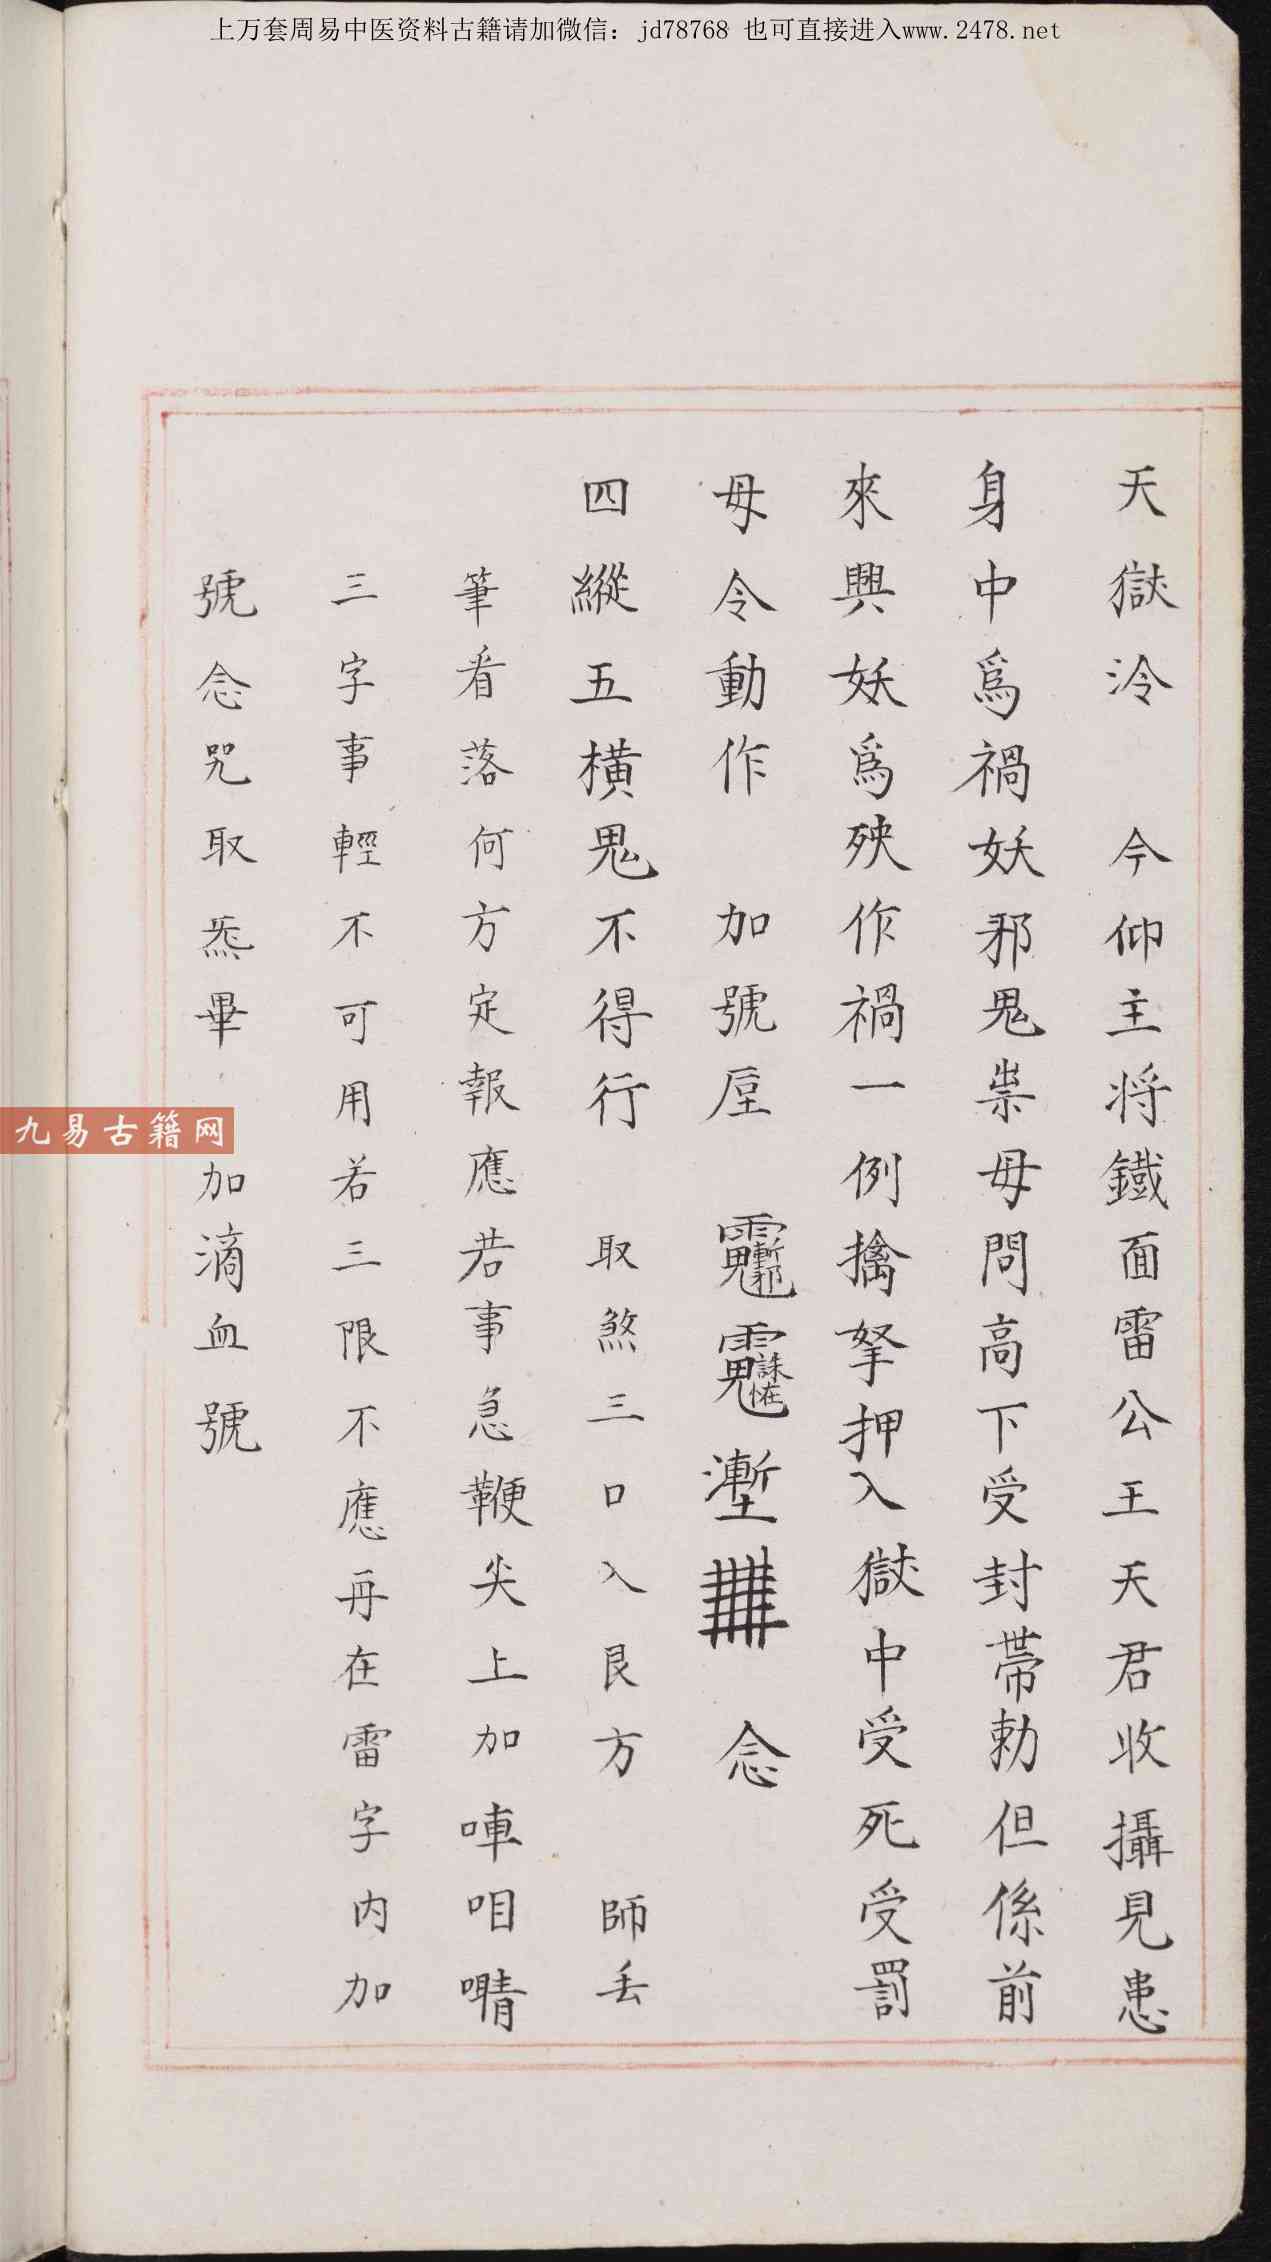 上万套周易中医资料古籍请加微信：jd78768 也可直接进入www.2478.net
天獄泠 今仰主将鐵面雷公王天君收攝見患
身中爲禍妖邪鬼祟毋問高下受封帶勅但係前
來興妖爲殃作禍一例擒拏押入獄中受死受罰
毋令動作 加號 塹 念
四縱五橫鬼不得行 取煞三口入艮方 師丢
筆看落何方定報應若事急鞭尖上加唓咱
三字事輕不可用若三限不應再在雷字内加
號念咒取炁畢 加滴血號
九易古籍网